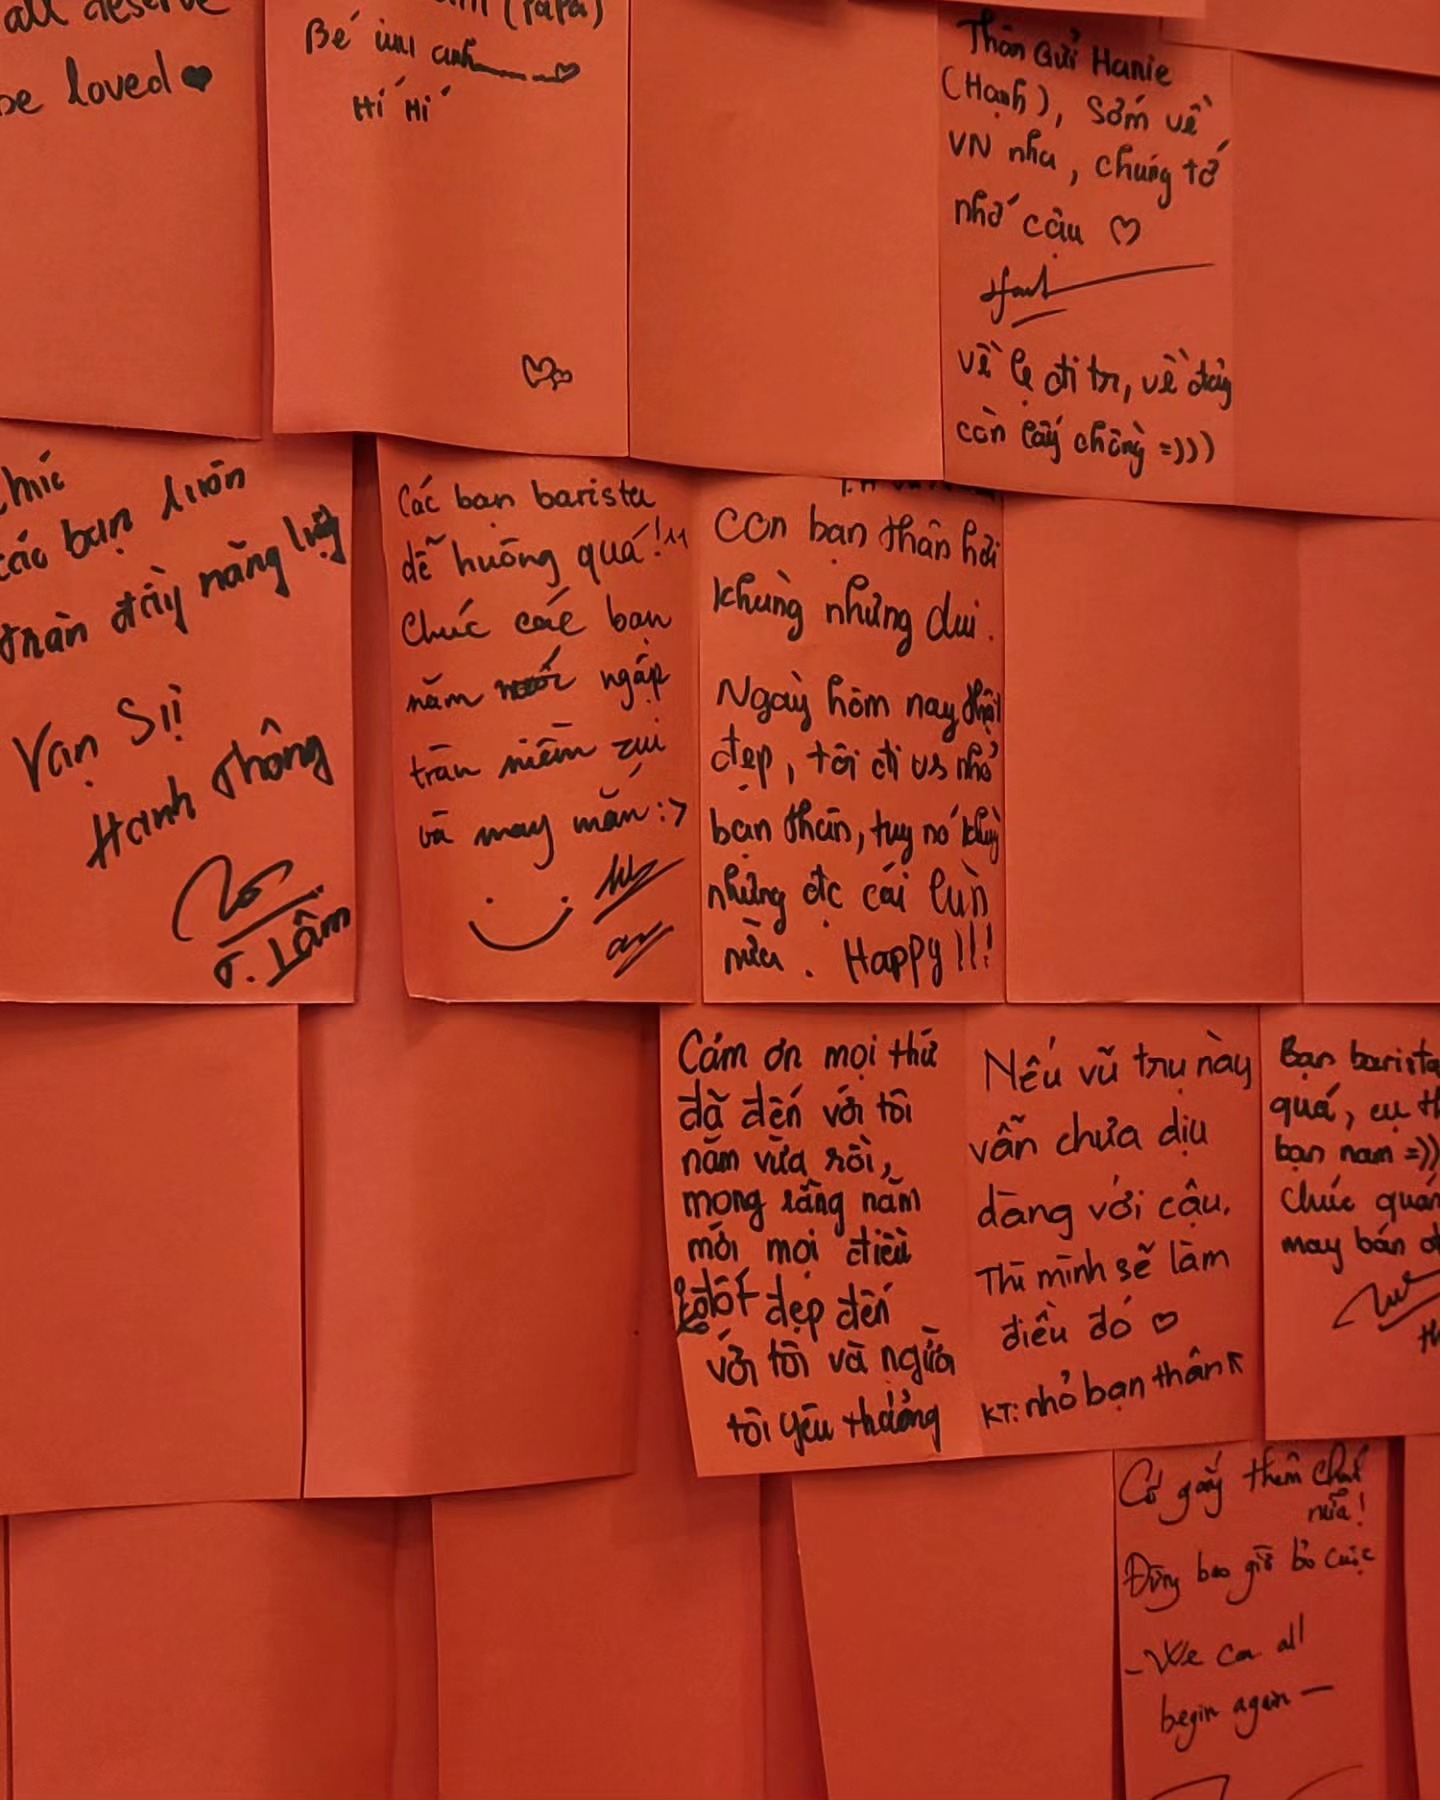 all deserve
be loved
(PaPa)
Bé iu anh
Hí Hí
Thân Gửi Hanie
(Hạnh), sớm về
VN nha, chúng tớ
nhớ cậu
về lẹ đi tr, về đây
còn lấy chồng =)))
các bạn luôn
tràn đầy năng lượng
Vạn Sự
Hanh Thông
T. Tâm
Các bạn barista
dễ huông quá!!
Chúc các bạn
năm ngập
tràn niềm zui
và may mắn :>
Con bạn thân hơi
khùng nhưng dui.
Ngày hôm nay thật
đẹp, tôi đi vs nhỏ
bạn thân, tuy nó khùng
nhưng đc cái lùn
nữa. Happy!!!
Cảm ơn mọi thứ
đã đến với tôi
năm vừa rồi,
mong rằng năm
mới mọi điều
tốt đẹp đến
với tôi và người
tôi yêu thương
Nếu vũ trụ này
vẫn chưa dịu
dàng với cậu.
Thì mình sẽ làm
điều đó
KT: nhỏ bạn thân
Bạn barista
quá, cụ th
bạn nam =))
Chúc quán
may bán đ
Cố gắng thêm chút
nữa!
Đừng bao giờ bỏ cuộc
- We can all
begin again -